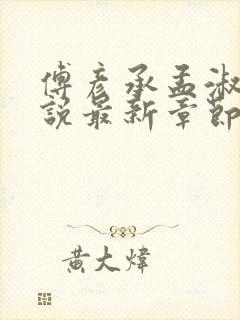 傅彦承孟淑
説最新章節
黄大煒